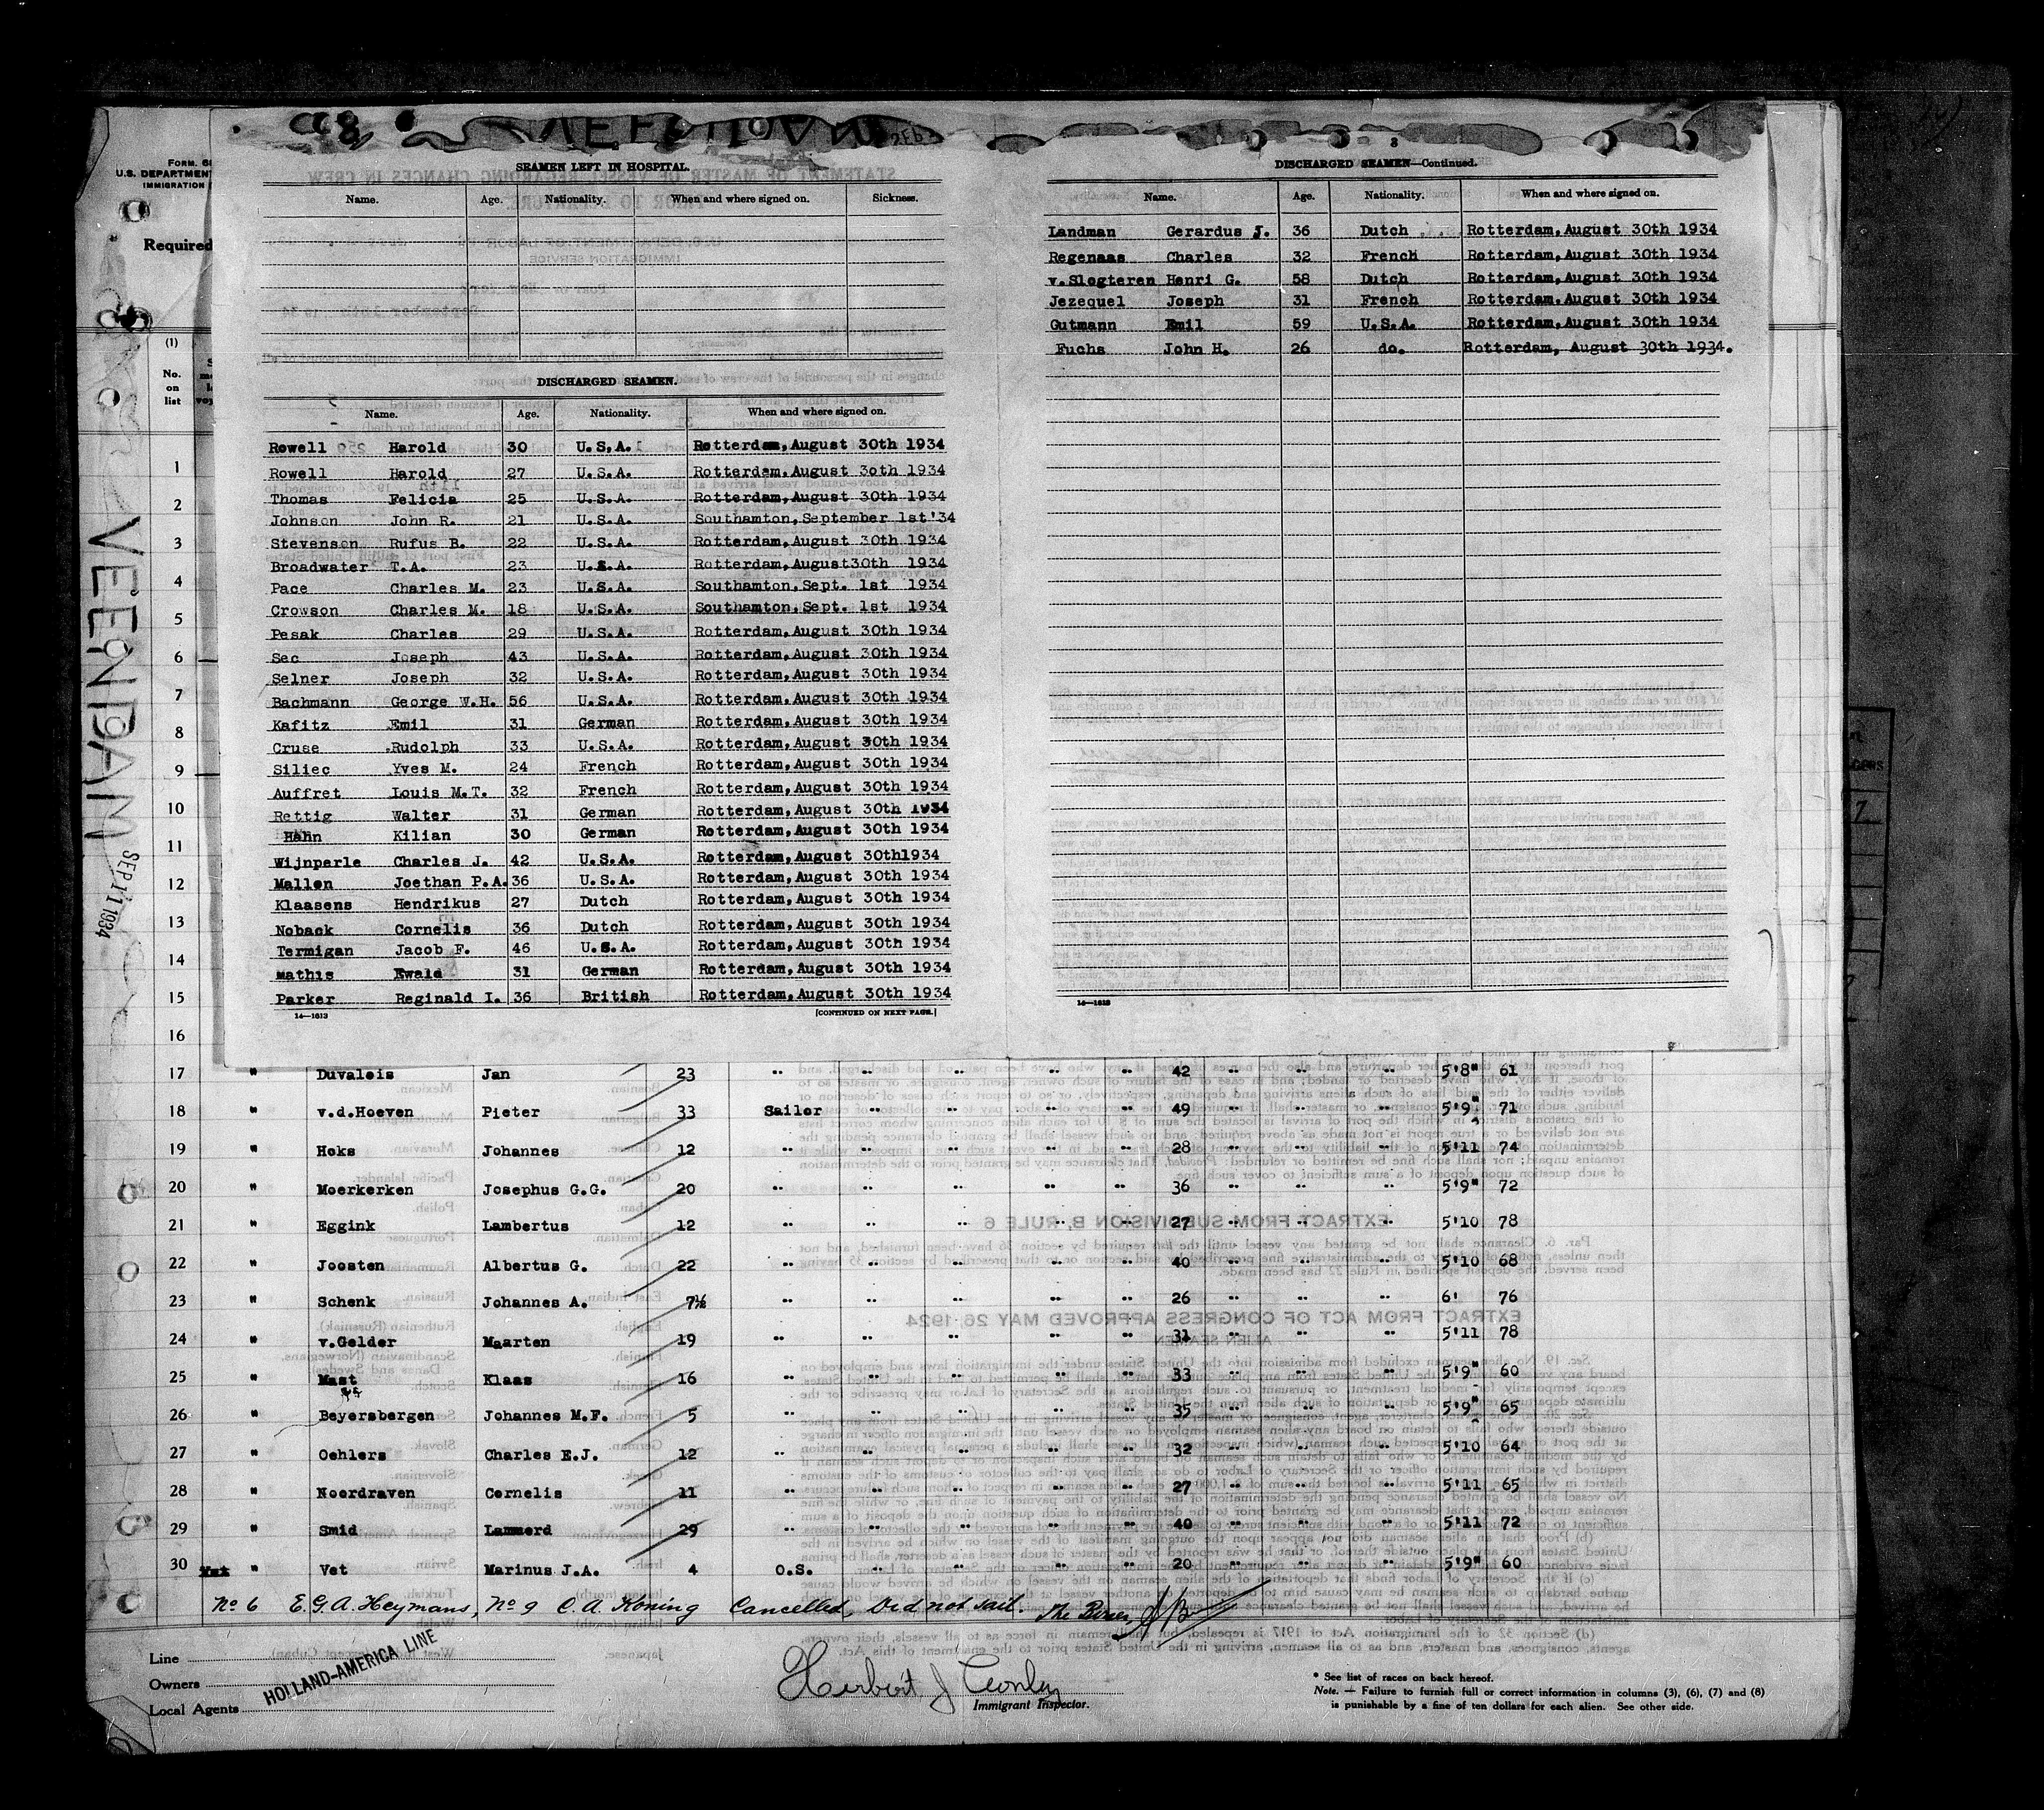 FORM. 6
U.S. DEPARTMENT
IMMIGRATION
Required
(1)
No.
on
list
VEENDAM
SEP 11 1934
8
SEAMEN LEFT IN HOSPITAL.
Name. Age. Nationality. When and where signed on. Sickness.
DISCHARGED SEAMEN.
Name. Age. Nationality. When and where signed on.
Rowell Harold 30 U.S.A. Rotterdam,August 30th 1934
Rowell Harold 27 U.S.A. Rotterdam,August 30th 1934
Thomas Felicia 25 U.S.A. Rotterdam,August 30th 1934
Johnson John R. 21 U.S.A. Southamton,September 1st'34
Stevenson Rufus B. 22 U.S.A. Rotterdam,August 30th 1934
Broadwater T.A. 23 U.S.A. Rotterdam,August30th 1934
Pace Charles M. 23 U.S.A. Southamton,Sept. 1st 1934
Crowson Charles M. 18 U.S.A. Southamton,Sept. 1st 1934
Pesak Charles 29 U.S.A. Rotterdam,August 30th 1934
Sec Joseph 43 U.S.A. Rotterdam,August 30th 1934
Selner Joseph 32 U.S.A. Rotterdam,August 30th 1934
Bachmann George W.H. 56 U.S.A. Rotterdam,August 30th 1934
Kafitz Emil 31 German Rotterdam,August 30th 1934
Cruse Rudolph 33 U.S.A. Rotterdam,August 30th 1934
Siliec Yves M. 24 French Rotterdam,August 30th 1934
Auffret Louis M.T. 32 French Rotterdam,August 30th 1934
Rettig Walter 31 German Rotterdam,August 30th 1934
Hahn Kilian 30 German Rotterdam,August 30th 1934
Wijnperle Charles J. 42 U.S.A. Rotterdam,August 30th1934
Mallen Joethan P.A. 36 U.S.A. Rotterdam,August 30th 1934
Klaasens Hendrikus 27 Dutch Rotterdam,August 30th 1934
Noback Cornelis 36 Dutch Rotterdam,August 30th 1934
Termigan Jacob F. 46 U.S.A. Rotterdam,August 30th 1934
Mathis Ewald 31 German Rotterdam,August 30th 1934
Parker Reginald I. 36 British Rotterdam,August 30th 1934
14—1613 [CONTINUED ON NEXT PAGE.]
3
DISCHARGED SEAMEN—Continued.
Name. Age. Nationality. When and where signed on.
Landman Gerardus J. 36 Dutch Rotterdam,August 30th 1934
Regenaas Charles 32 French Rotterdam,August 30th 1934
v.Slogteren Henri G. 58 Dutch Rotterdam,August 30th 1934
Jezequel Joseph 31 French Rotterdam,August 30th 1934
Gutmann Emil 59 U.S.A. Rotterdam,August 30th 1934
Fuchs John H. 26 do. Rotterdam, August 30th 1934.
14—1613
1
2
3
4
5
6
7
8
9
10
11
12
13
14
15
16
17 " Duvaleis Jan 23 " " " " " 42 " " " 5'8" 61
18 " v.d.Hoeven Pieter 33 Sailor " " " " 49 " " " 5'9" 71
19 " Hoks Johannes 12 " " " " " 28 " " " 5'11 74
20 " Moerkerken Josephus G.G. 20 " " " " " 36 " " " 5'9" 72
21 " Eggink Lambertus 12 " " " " " 27 " " " 5'10 78
22 " Joosten Albertus G. 22 " " " " " 40 " " " 5'10 68
23 " Schenk Johannes A. 7½ " " " " " 26 " " " 6' 76
24 " v.Gelder Maarten 19 " " " " " 31 " " " 5'11 78
25 " Mast Klaas 16 " " " " " 33 " " " 5'9" 60
26 " Beyersbergen Johannes M.F. 5 " " " " " 35 " " " 5'9" 65
27 " Oehlers Charles E.J. 12 " " " " " 32 " " " 5'10 64
28 " Noordraven Cornelis 11 " " " " " 27 " " " 5'11 65
29 " Smid Lammerd 29 " " " " " 40 " " " 5'11 72
30 " Vet Marinus J.A. 4 O.S. " " " " 20 " " " 5'9" 60
No 6 E.G.A. Heymans, No 9 C.A. Koning Cancelled, Did not sail.
Line
Owners
Local Agents
HOLLAND-AMERICA LINE
Herbert J Conley
Immigrant Inspector.
* See list of races on back hereof.
Note. — Failure to furnish full or correct information in columns (3), (6), (7) and (8)
is punishable by a fine of ten dollars for each alien. See other side.